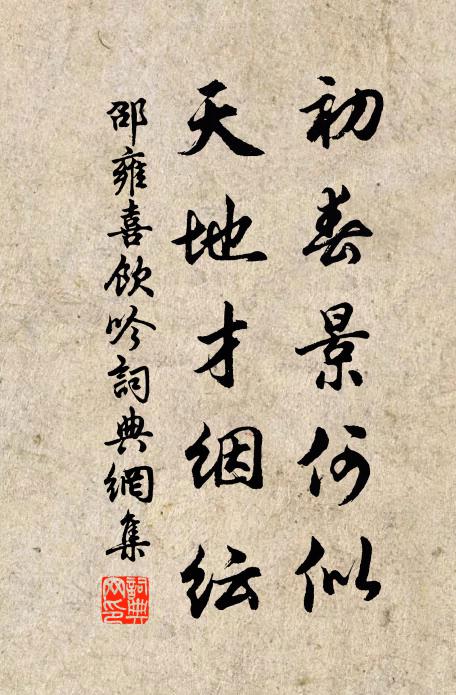 初春景何似
天地才絪紜
邵雍喜飲吟詞典網集
詞典
網印